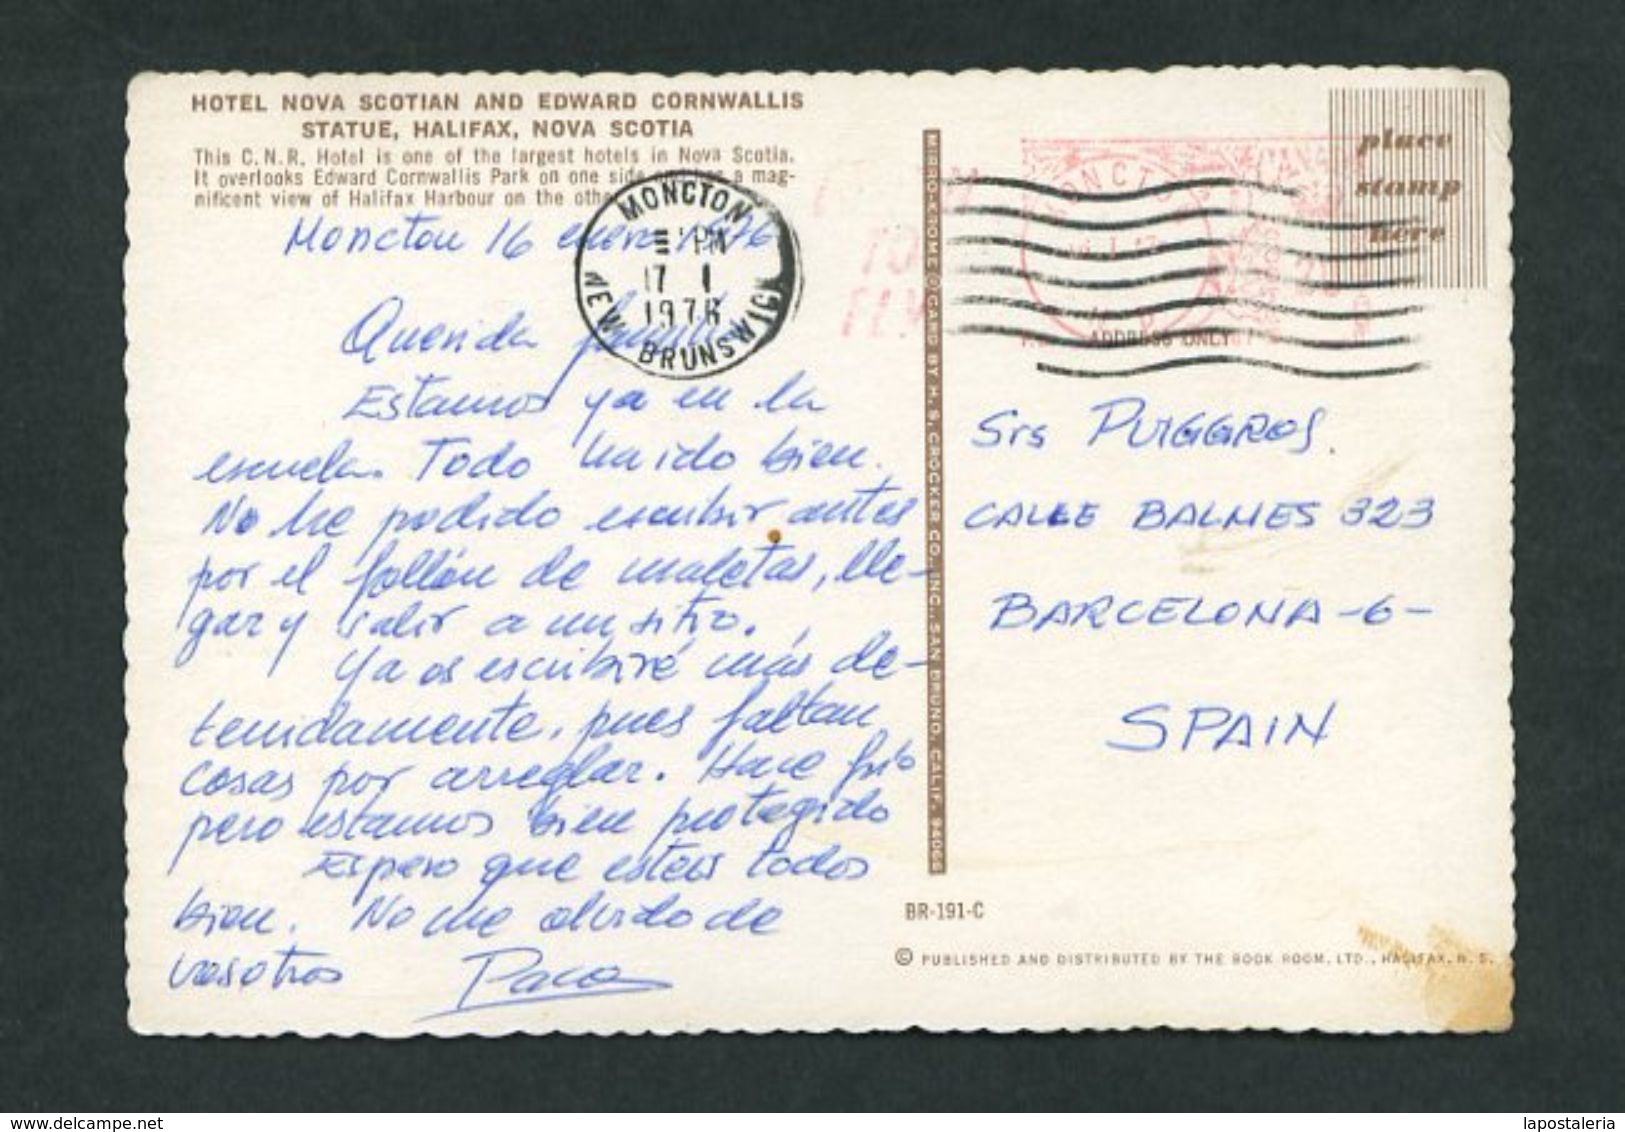 HOTEL NOVA SCOTIAN AND EDWARD CORNWALLIS
STATUE, HALIFAX, NOVA SCOTIA
This C.N.R. Hotel is one of the largest hotels in Nova Scotia.
It overlooks Edward Cornwallis Park on one side a mag-
nificent view of Halifax Harbour on the
Moncton 16 enero 1976
Querida familia
Estamos ya en la
escuela. Todo ha ido bien.
No he podido escribir antes
por el follón de maletas, lle-
gar y salir a un sitio.
Ya os escribiré más de-
tenidamente, pues faltan
cosas por arreglar. Hace frío
pero estamos bien protegido
Espero que esteis todos
bien. No me olvido de
vosotros Paco
MONCTON
PM
17 I
1976
NEW BRUNSWICK
MIRRO-KROME CARD BY H. S. CROCKER CO., INC., SAN BRUNO, CALIF. 94066
MONCTON
place
stamp
here
ADDRESS ONLY
Srs PUIGGROS.
CALLE BALMES 323
BARCELONA -6-
SPAIN
BR-191-C
© PUBLISHED AND DISTRIBUTED BY THE BOOK ROOM, LTD., HALIFAX, N. S.
lapostaleria
www.delcampe.net